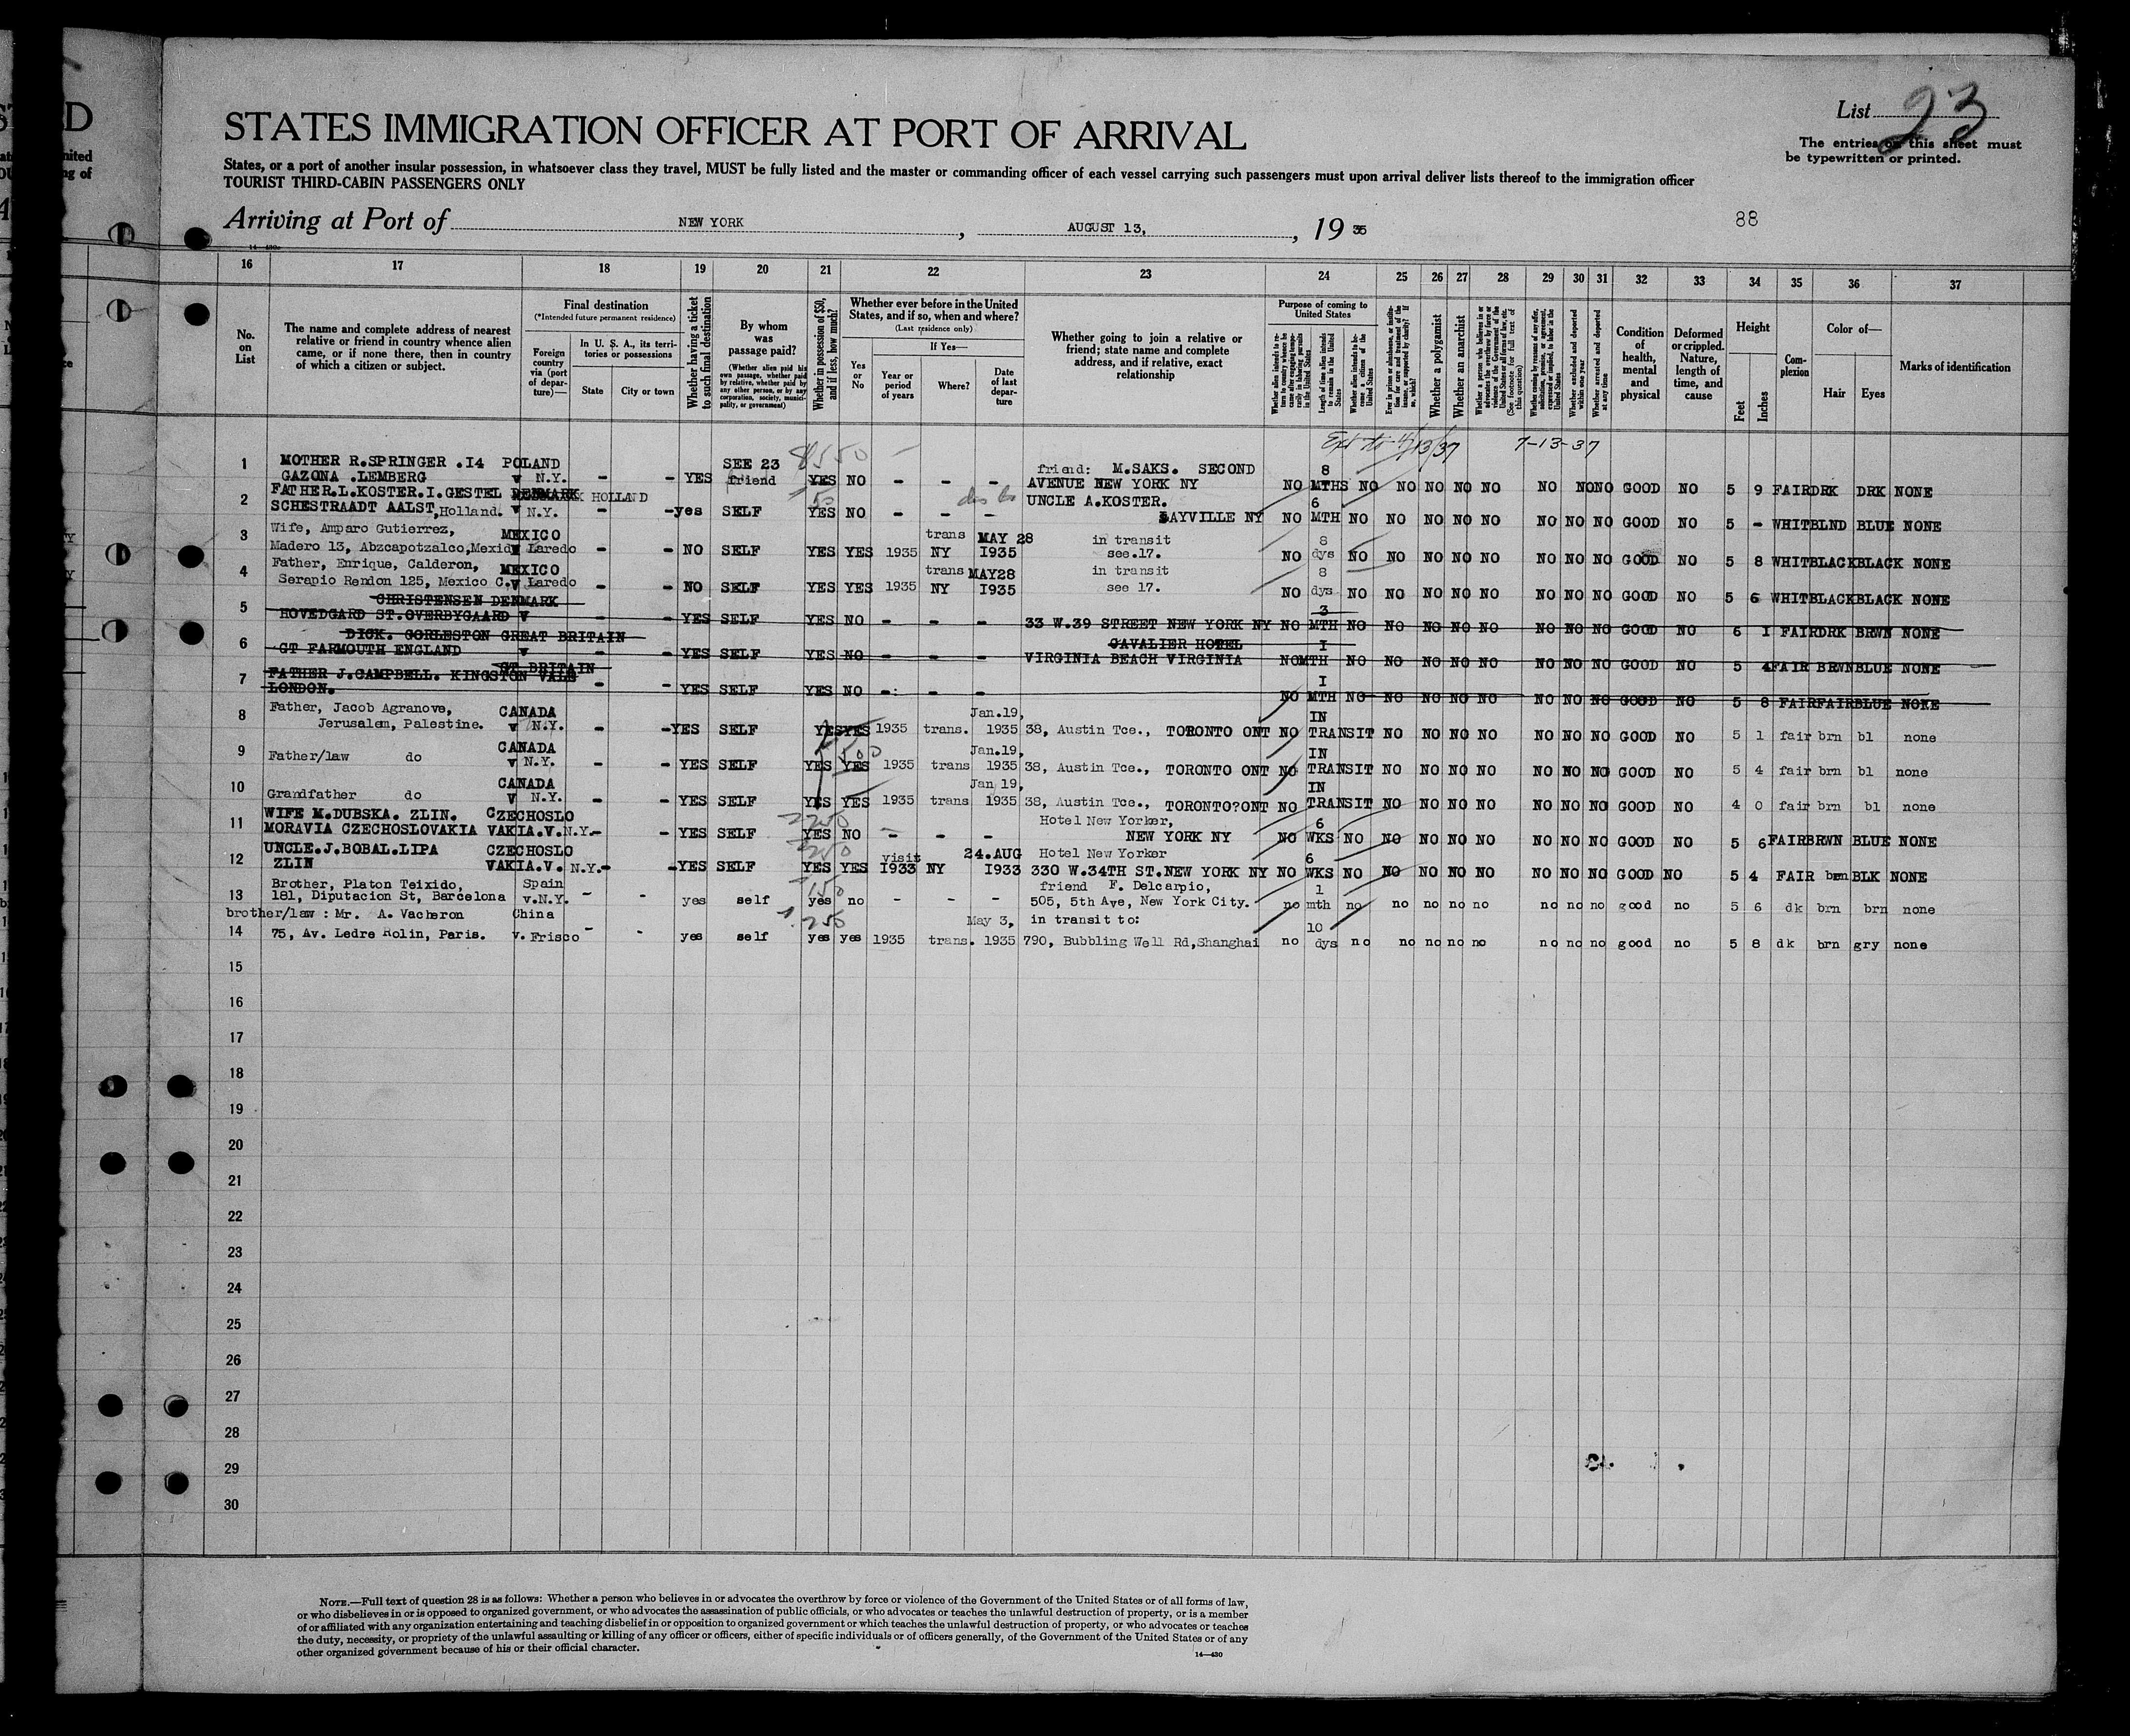 List 23
The entries on this sheet must
be typewritten or printed.
STATES IMMIGRATION OFFICER AT PORT OF ARRIVAL
States, or a port of another insular possession, in whatsoever class they travel, MUST be fully listed and the master or commanding officer of each vessel carrying such passengers must upon arrival deliver lists thereof to the immigration officer
TOURIST THIRD-CABIN PASSENGERS ONLY
Arriving at Port of NEW YORK, AUGUST 13, 1935
88
16 17 18 19 20 21 22 23 24 25 26 27 28 29 30 31 32 33 34 35 36 37
No. on List
The name and complete address of nearest
relative or friend in country whence alien
came, or if none there, then in country
of which a citizen or subject.
Final destination
(*Intended future permanent residence)
Foreign country via (port of departure)—
In U. S. A., its territories or possessions
State
City or town
Whether having a ticket to such final destination
By whom was passage paid?
(Whether alien paid his own passage, whether paid by relative, whether paid by any other person, or by any corporation, society, municipality, or government)
Whether in possession of $50, and if less, how much?
Whether ever before in the United
States, and if so, when and where?
(Last residence only)
Yes or No
If Yes—
Year or period of years
Where?
Date of last departure
Whether going to join a relative or
friend; state name and complete
address, and if relative, exact
relationship
Purpose of coming to United States
Length of time alien intends to remain in the United States
Whether alien intends to become a citizen of the United States
Whether a polygamist
Whether an anarchist
Whether excluded and deported within one year
Whether arrested and deported at any time
Condition of health, mental and physical
Deformed or crippled. Nature, length of time, and cause
Height
Feet
Inches
Complexion
Color of—
Hair
Eyes
Marks of identification
7-13-37
1 MOTHER R.SPRINGER .I4 POLAND SEE 23 friend: M.SAKS. SECOND 8
GAZONA .LEMBERG v N.Y. - - YES friend YES NO - - - AVENUE NEW YORK NY NO MTHS NO NO NO NO NO NO NO NO GOOD NO 5 9 FAIR DRK DRK NONE
2 FATHER.L.KOSTER.I.GESTEL DENMARK HOLLAND UNCLE A.KOSTER. 6
SCHESTRAADT AALST, Holland. v N.Y. - - yes SELF YES NO - - - SAYVILLE NY NO MTH NO NO NO NO NO NO NO NO GOOD NO 5 - WHIT BLND BLUE NONE
3 Wife, Amparo Gutierrez, MEXICO trans MAY 28 in transit 8
Madero 13, Abzcapotzalco, v Laredo - - NO SELF YES YES 1935 NY I935 see.17. NO dys NO NO NO NO NO NO NO NO GOOD NO 5 8 WHIT BLACK BLACK NONE
4 Father, Enrique, Calderon, MEXICO trans MAY28 in transit 8
Serapio Rendon 125, Mexico C. v Laredo - - NO SELF YES YES 1935 NY I935 see 17. NO dys NO NO NO NO NO NO NO NO GOOD NO 5 6 WHIT BLACK BLACK NONE
5 CHRISTENSEN DENMARK 3
HOVEDGARD ST.OVERBYGAARD V - - YES SELF YES NO - - - 33 W.39 STREET NEW YORK NY NO MTH NO NO NO NO NO NO NO NO GOOD NO 6 I FAIR DRK BRWN NONE
6 DICK. GORLESTON GREAT BRITAIN CAVALIER HOTEL I
GT FARMOUTH ENGLAND v - - YES SELF YES NO - - - VIRGINIA BEACH VIRGINIA NO MTH NO NO NO NO NO NO NO NO GOOD NO 5 4 FAIR BRWN BLUE NONE
7 FATHER J.CAMPBELL. KINGSTON VALE GT.BRITAIN I
LONDON. - - YES SELF YES NO - - - NO MTH NO NO NO NO NO NO NO NO GOOD NO 5 8 FAIR FAIR BLUE NONE
8 Father, Jacob Agranove, CANADA Jan.19, IN
Jerusalem, Palestine. v N.Y. - - YES SELF YES YES 1935 trans. 1935 38, Austin Tce., TORONTO ONT NO TRANSIT NO NO NO NO NO NO NO NO GOOD NO 5 1 fair brn bl none
9 CANADA Jan.19, IN
Father/law do v N.Y. - - YES SELF YES YES 1935 trans 1935 38, Austin Tce., TORONTO ONT NO TRANSIT NO NO NO NO NO NO NO NO GOOD NO 5 4 fair brn bl none
10 CANADA Jan 19, IN
Grandfather do v N.Y. - - YES SELF YES YES 1935 trans 1935 38, Austin Tce., TORONTO?ONT NO TRANSIT NO NO NO NO NO NO NO NO GOOD NO 4 0 fair brn bl none
11 WIFE M.DUBSKA. ZLIN. CZECHOSLO 250 Hotel New Yorker, 6
MORAVIA CZECHOSLOVAKIA VAKIA.V. N.Y. - - YES SELF YES NO - - - NEW YORK NY NO WKS NO NO NO NO NO NO NO NO GOOD NO 5 6 FAIR BRWN BLUE NONE
12 UNCLE.J.BOBAL.LIPA CZECHOSLO 250 visit 24.AUG Hotel New Yorker 6
ZLIN VAKIA.V. N.Y. - - YES SELF YES YES I933 NY I933 330 W.34TH ST.NEW YORK NY NO WKS NO NO NO NO NO NO NO NO GOOD NO 5 4 FAIR brn BLK NONE
13 Brother, Platon Teixido, Spain 150 friend F. Delcarpio, 1
181, Diputacion St, Barcelona v.N.Y. - - yes self yes no - - - 505, 5th Ave, New York City. no mth no no no no no no no no good no 5 6 dk brn brn none
brother/law : Mr. A. Vacheron China 250 May 3, in transit to: 10
14 75, Av. Ledre Rolin, Paris. v. Frisco - - yes self yes yes 1935 trans. 1935 790, Bubbling Well Rd,Shanghai no dys no no no no no no no no good no 5 8 dk brn gry none
15
16
17
18
19
20
21
22
23
24
25
26
27
28
29
30
NOTE.—Full text of question 28 is as follows: Whether a person who believes in or advocates the overthrow by force or violence of the Government of the United States or of all forms of law,
or who disbelieves in or is opposed to organized government, or who advocates the assassination of public officials, or who advocates or teaches the unlawful destruction of property, or is a member
of or affiliated with any organization entertaining and teaching disbelief in or opposition to organized government or which teaches the unlawful destruction of property, or who advocates or teaches
the duty, necessity, or propriety of the unlawful assaulting or killing of any officer or officers, either of specific individuals or of officers generally, of the Government of the United States or of any
other organized government because of his or their official character.
14—430